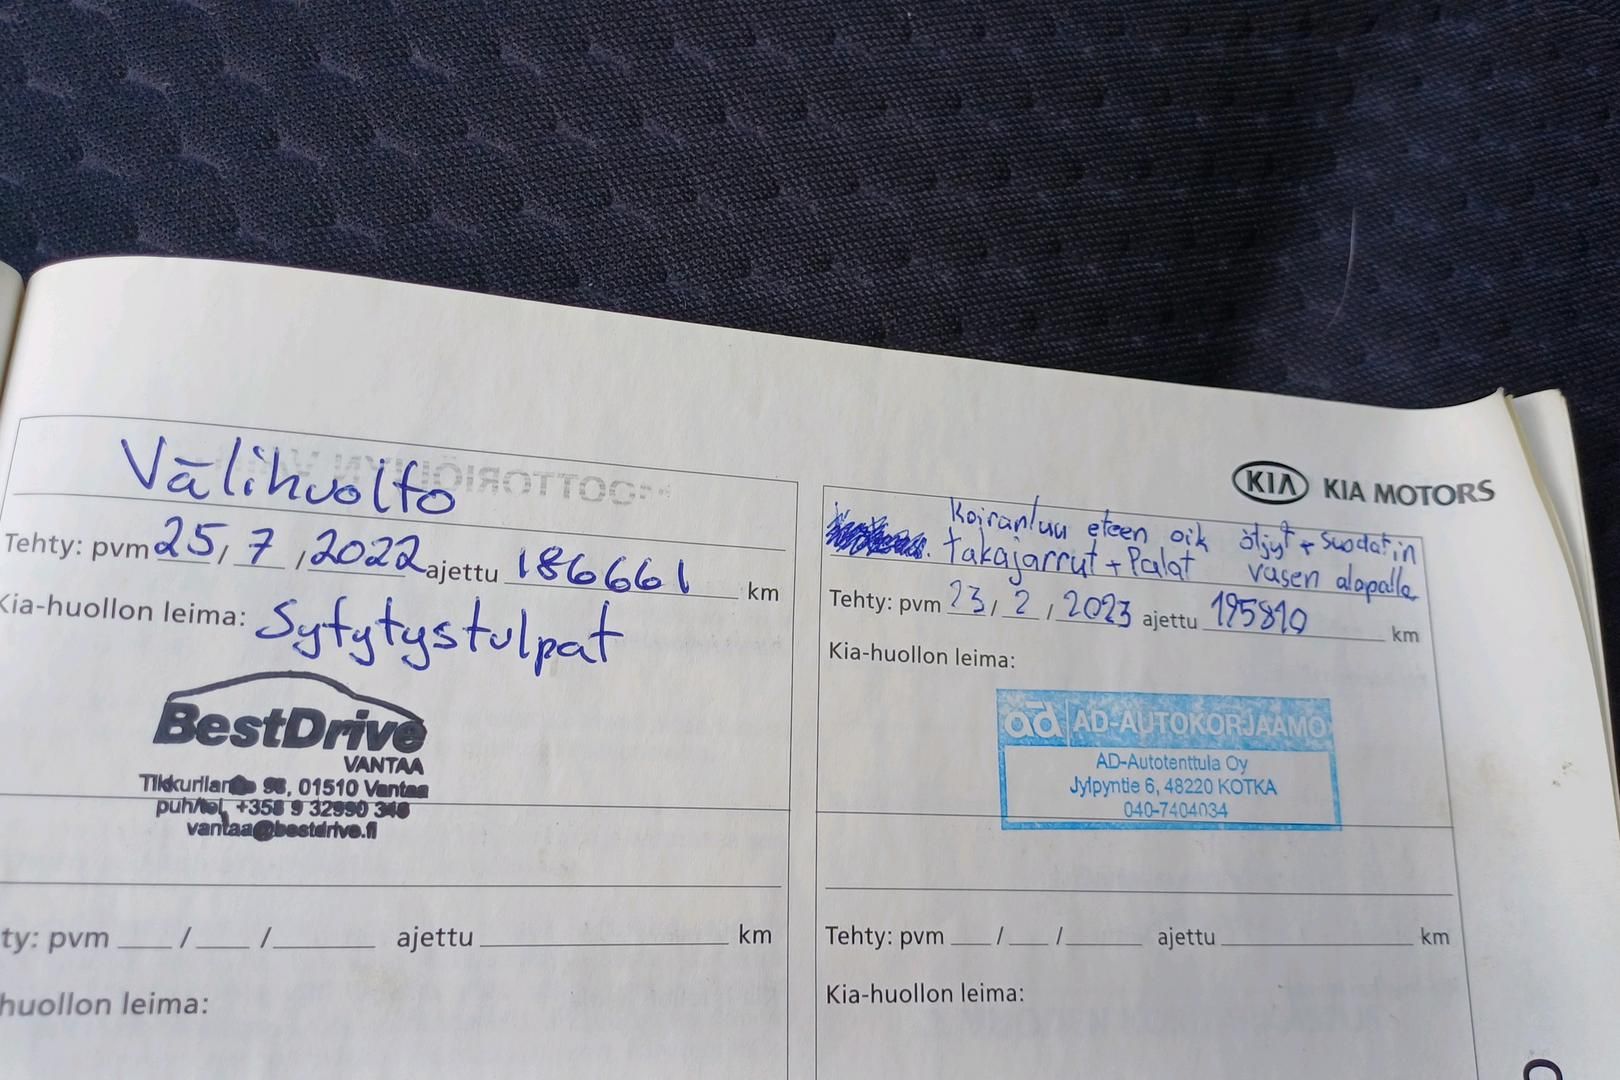 Välihuolto
Tehty: pvm 25/ 7 / 2022 ajettu 186661 km
Kia-huollon leima: Sytytystulpat
BestDrive
VANTAA
98, 01510 Vantaa
puh/tel, +358 9 32990 340
vantaa@bestdrive.fi
ty: pvm / / ajettu km
huollon leima:
KIA KIA MOTORS
Koiranluu eteen oik öljyt + suodatin
takajarrut + Palat vasen alapalle
Tehty: pvm 23/ 2 / 2023 ajettu 195810 km
Kia-huollon leima:
ad AD-AUTOKORJAAMO
AD-Autotenttula Oy
Jylpyntie 6, 48220 KOTKA
040-7404034
Tehty: pvm / / ajettu km
Kia-huollon leima: